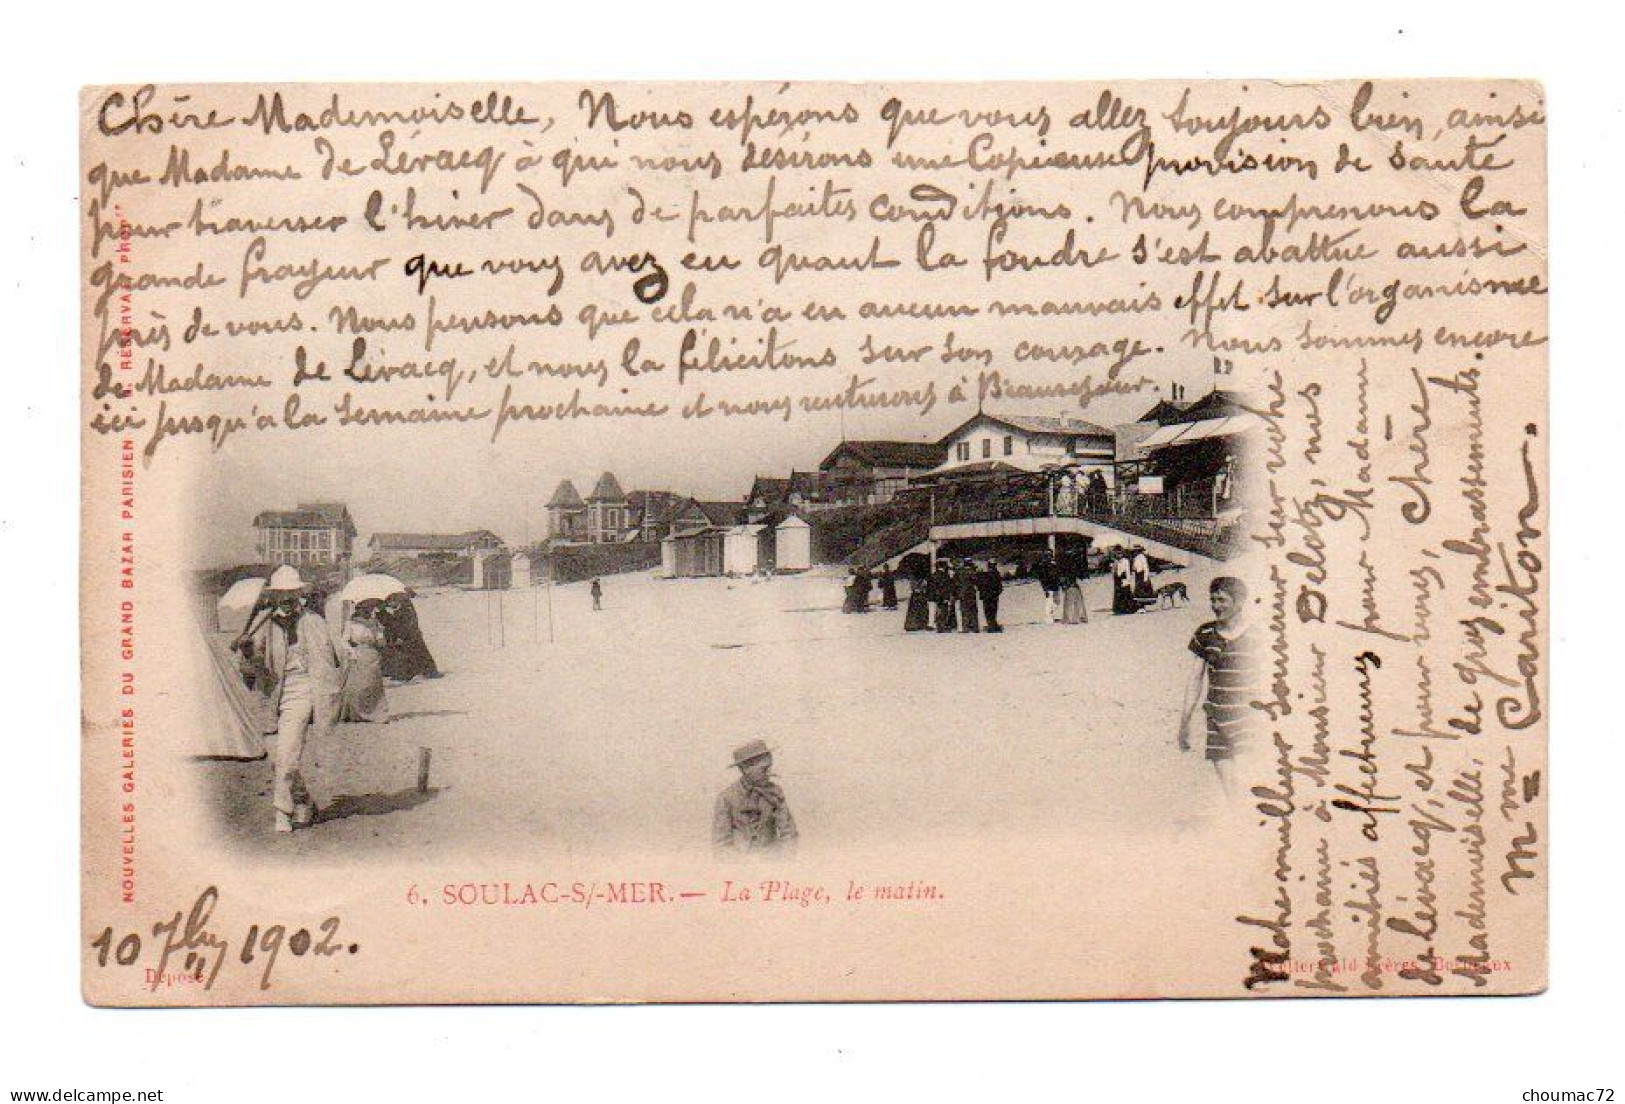 Chère Mademoiselle, Nous espérons que vous allez toujours bien, ainsi
que Madame de Lévacq à qui nous désirons une Copieuse provision de santé
pour traverser l'hiver dans de parfaites conditions. Nous comprenons la
grande frayeur que vous avez eu quant la foudre s'est abattue aussi
près de vous. Nous pensons que cela n'a eu aucun mauvais effet sur l'organisme
de Madame de Lévacq, et nous la félicitons sur son courage. Nous sommes encore
ici jusqu'à la semaine prochaine et nous rentrerons à Beauséjour.
Notre meilleur souvenir
prochain à Monsieur Delotz, nos
amitiés affectueuses pour Madame
de Lévacq, et pour vous, Chère
Mademoiselle, de gros embrassements.
Mme Cariton.
NOUVELLES GALERIES DU GRAND BAZAR PARISIEN
6. SOULAC-S/-MER. — La Plage, le matin.
10 7bre 1902.
Déposé
Frères, Bordeaux
choumac72